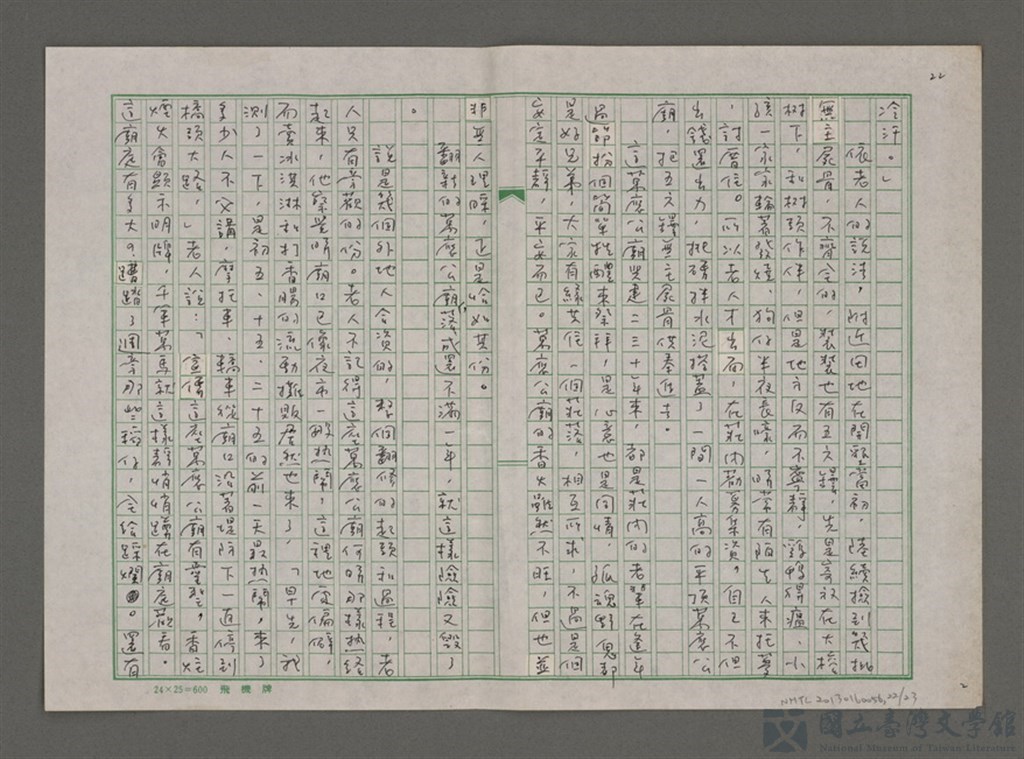 22
冷汗。」
依老人的說法,附近田地在開墾當初,陸續撿到幾批
無主屍骨,不齊全的,裝裝也有五六罈,先是寄放在大榕
樹下,和樹頭作伴,但是地方反而不寧靜,雞鴨得瘟、小
孩一家家輪著發燒、狗仔半夜長嚎,時常有陌生人來托夢
,討厝住。所以老人才出面,在莊內勸募集資,自己不但
出錢還出力,挑磚拌水泥搭蓋了一間一人高的平頂萬應公
廟,把五六罈無主屍骨供奉進去。
這萬應公廟興建二三十年來,都是莊內的老輩在逢年
過節扮個簡單牲醴來祭拜,是心意也是同情,孤魂野鬼都
是好兄弟,大家有緣共住一個莊落,相互所求,不過是個
安定平靜,平安而已。萬應公廟的香火雖然不旺,但也並
非無人理睬,正是恰如其份。
翻新的萬應公廟落成還不滿一年,就這樣險險又毀了
。
說是幾個外地人合資的,整個翻修的起頭和過程,老
人只有旁觀的份。老人不記得這座萬應公廟何時那樣熱絡
起來,他察覺時廟口已像夜市一般熱鬧,這裡地處偏僻,
而賣冰淇淋和打香腸的流動攤販居然也來了,「早先,我
測了一下,是初五、十五、二十五的前一天最熱鬧,來了
多少人不必講,摩托車、轎車從廟口沿著堤防下一直停到
橋頭大路,」老人說:「宣傳這座萬應公廟有靈聖,香炷
煙火會顯示明牌,千軍萬馬就這樣靜悄悄蹲在廟庭觀看。
這廟庭有多大?蹧蹋了週旁那些稻仔,全給踩爛。還有
24×25=600 飛機牌
2
NMTL20130160056,22/23
國立臺灣文學館
National Museum of Taiwan Literature